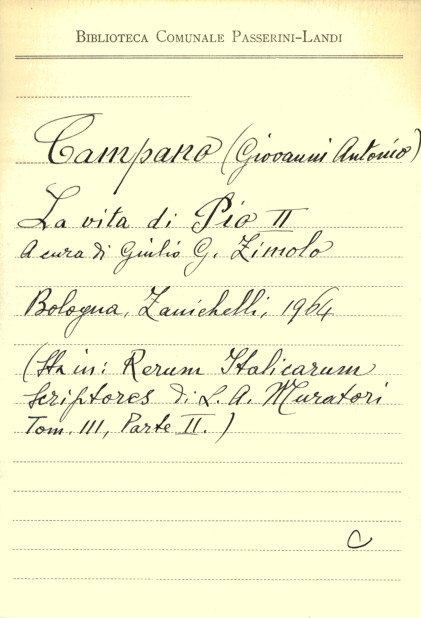 BIBLIOTECA COMUNALE PASSERINI-LANDI
Campano (Giovanni Antonio)
La vita di Pio II
A cura di Giulio G. Zimolo
Bologna, Zanichelli, 1964
(Sta in: Rerum Italicarum
Scriptores di L. A. Muratori
Tom. III, Parte II.)
C